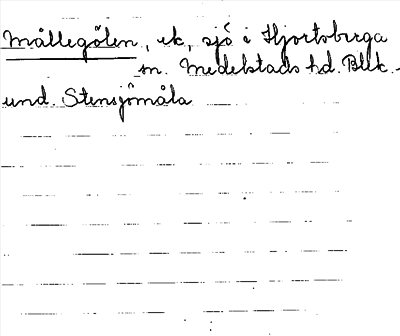 Mållegölen, ek, sjö i Hjortsberga
sn. Medelstads hd. Blek.
und. Stensjömåla